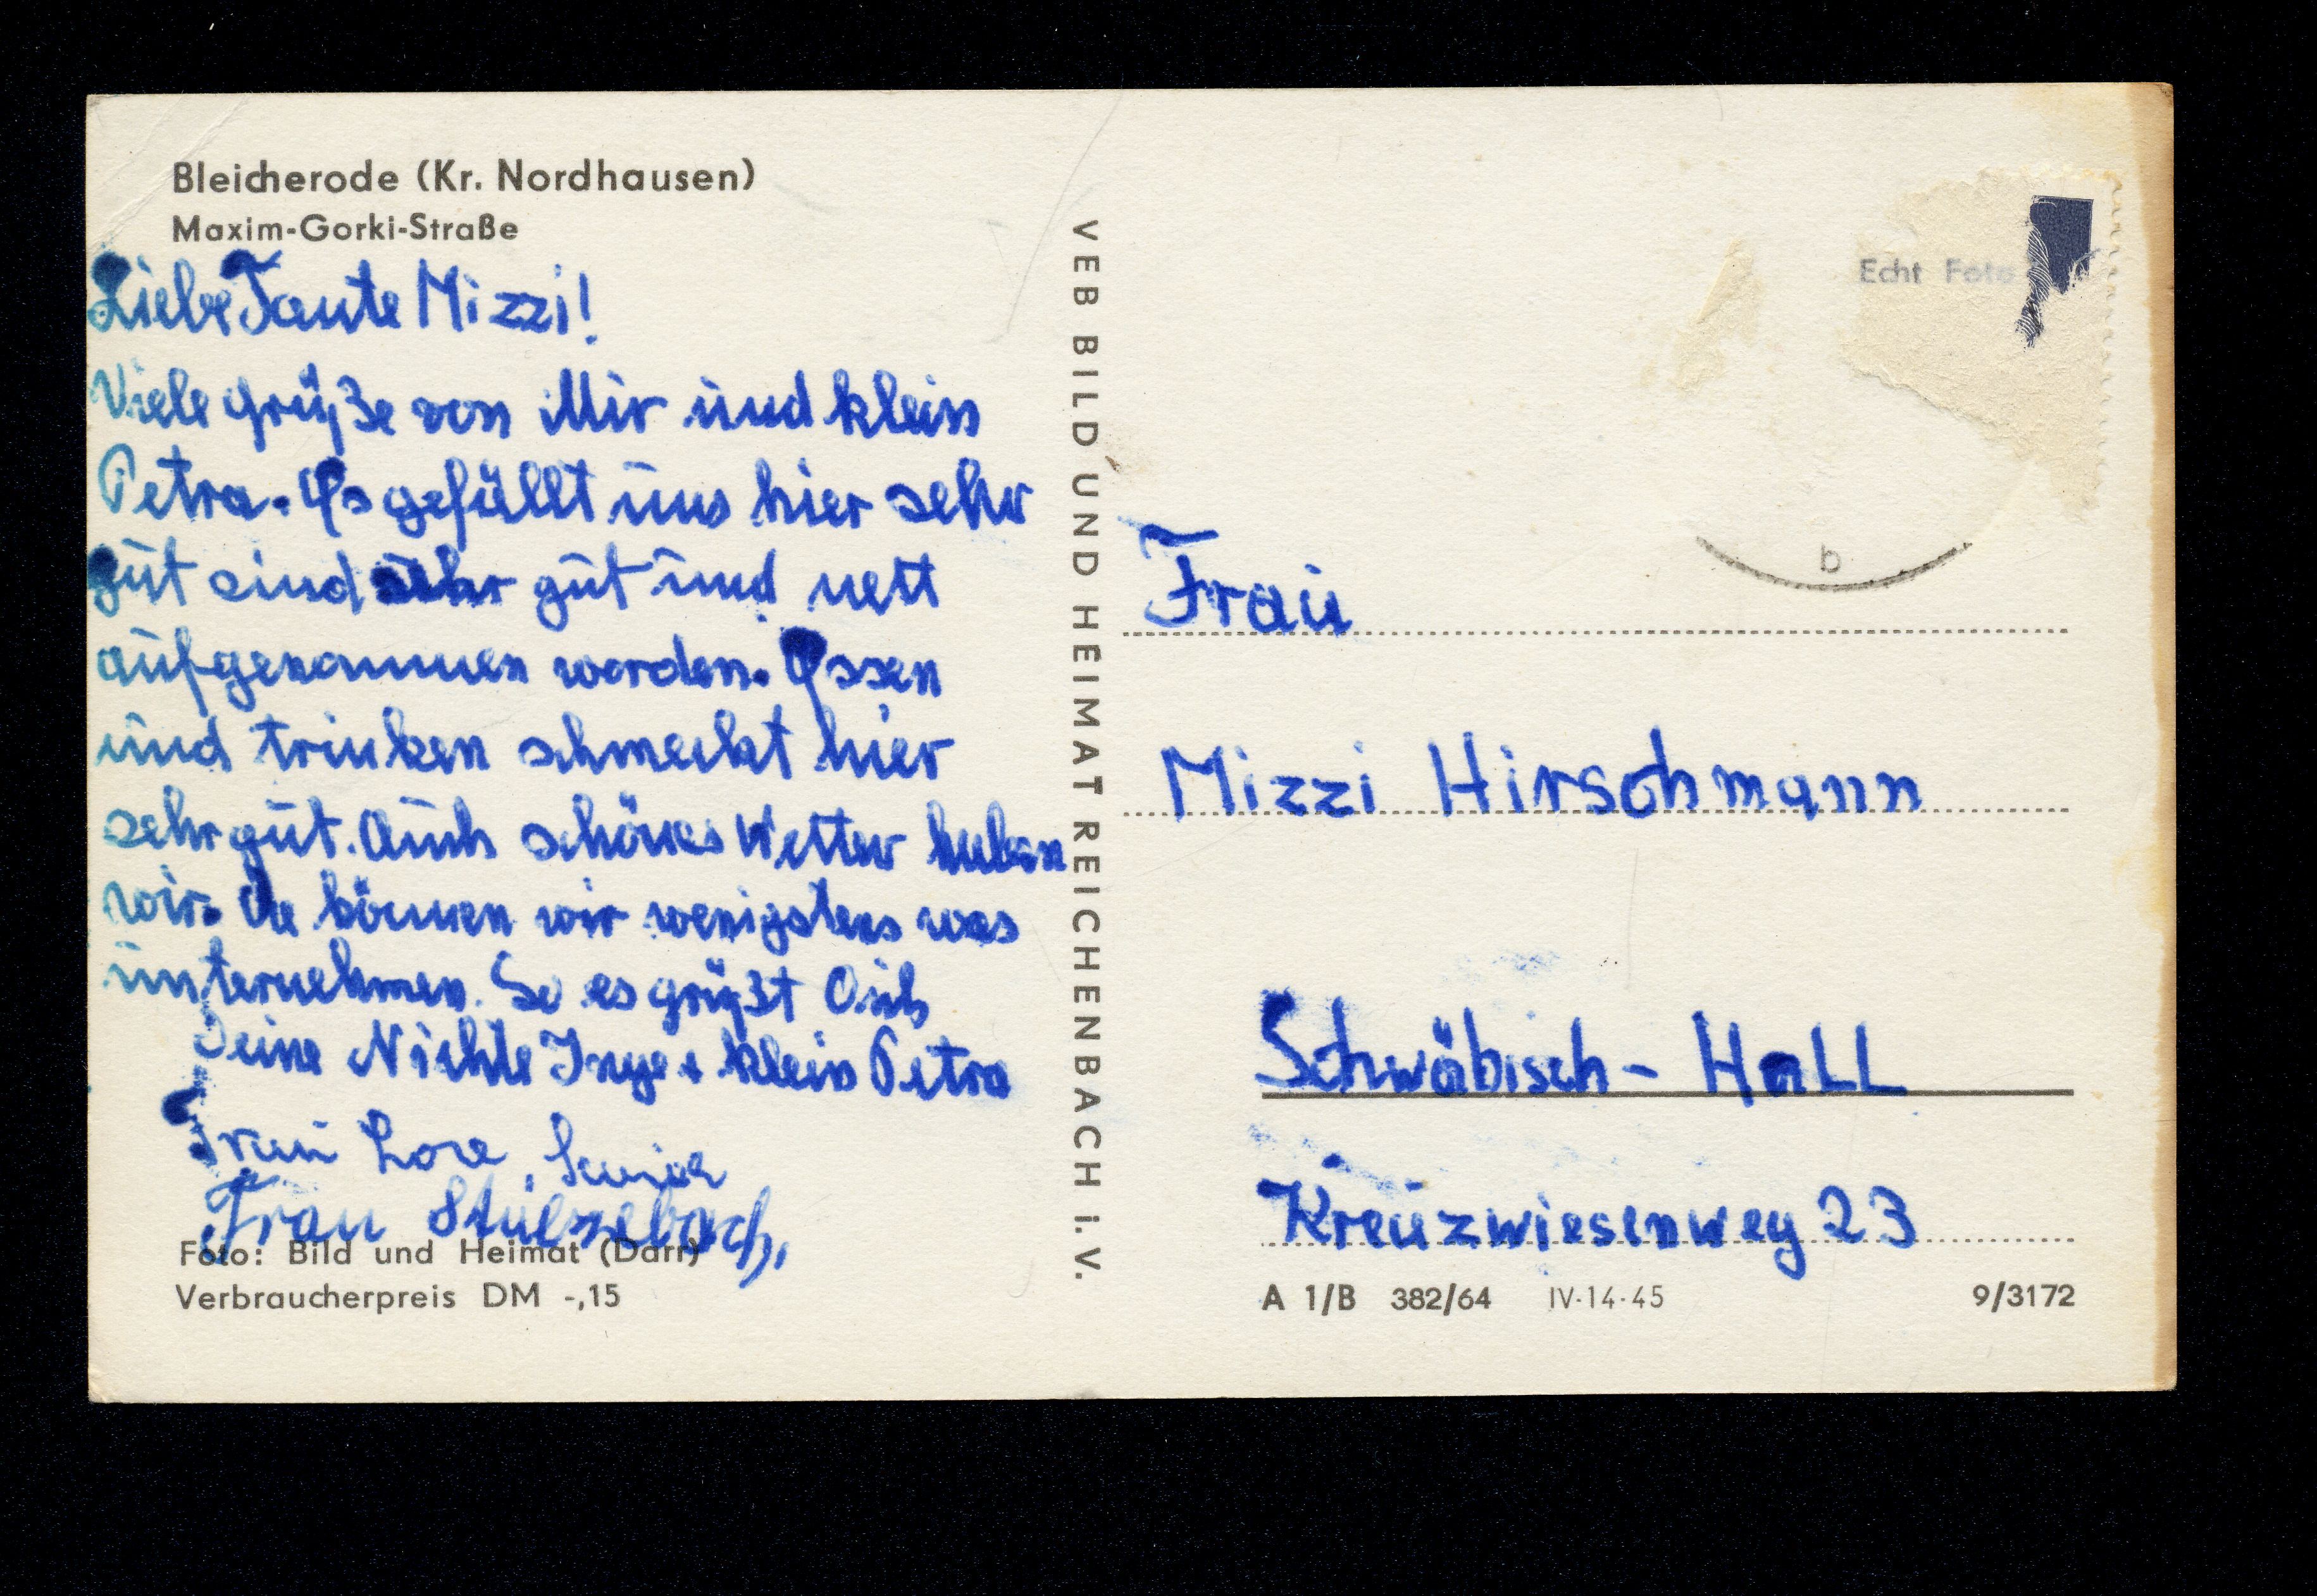 Bleicherode (Kr. Nordhausen)
Maxim-Gorki-Straße
Liebe Tante Mizzi!
Viele Grüße von Mir und klein
Petra. Es gefällt uns hier sehr
gut sind sehr gut und nett
aufgenommen worden. Essen
und trinken schmeckt hier
sehr gut. Auch schönes Wetter haben
wir. Da können wir wenigstens was
unternehmen. So es grüßt Dich
Deine Nichte Inge + klein Petra
Frau Lore
Frau
Foto: Bild und Heimat (Darr)
Verbraucherpreis DM -,15
VEB BILD UND HEIMAT REICHENBACH i. V.
Echt Foto
b
Frau
Mizzi Hirschmann
Schwäbisch-Hall
Kreuzwiesenweg 23
A 1/B 382/64 IV-14-45 9/3172